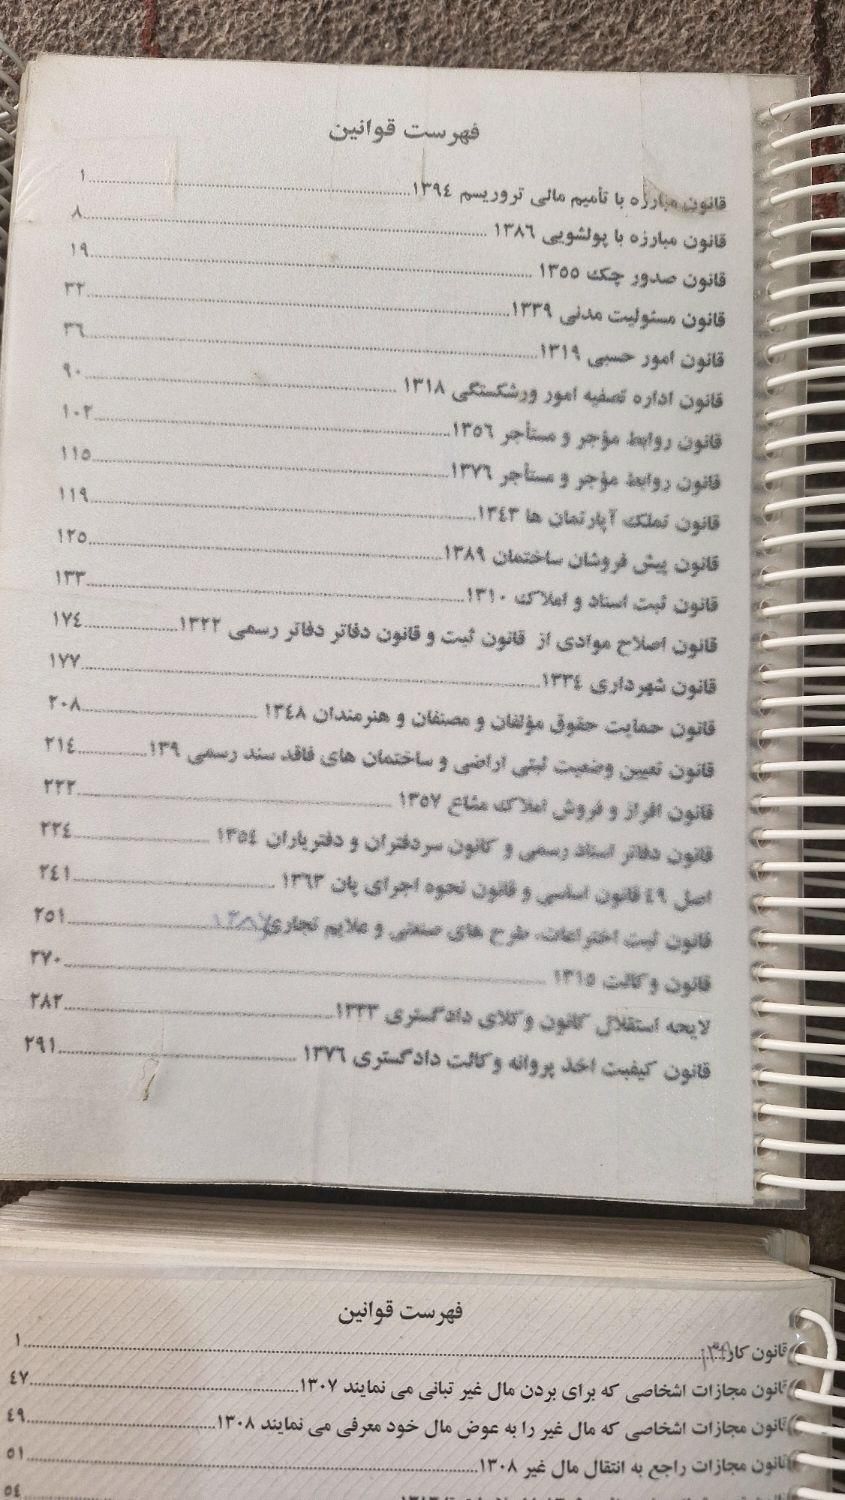 فهرست قوانین
قانون مبارزه با تأمیم مالی تروریسم ۱۳۹٤ ۱
قانون مبارزه با پولشویی ۱۳۸٦ ۸
قانون صدور چک ۱۳۵۵ ۱۹
قانون مسئولیت مدنی ۱۳۳۹ ۳۲
قانون امور حسبی ۱۳۱۹ ۳٦
قانون اداره تصفیه امور ورشکستگی ۱۳۱۸ ۹۰
قانون روابط مؤجر و مستأجر ۱۳۵٦ ۱۰۲
قانون روابط مؤجر و مستأجر ۱۳۷٦ ۱۱۵
قانون تملک آپارتمان ها ۱۳٤۳ ۱۱۹
قانون پیش فروشان ساختمان ۱۳۸۹ ۱۲۵
قانون ثبت اسناد و املاک ۱۳۱۰ ۱۳۳
قانون اصلاح موادی از قانون ثبت و قانون دفاتر دفاتر رسمی ۱۳۲۲ ۱۷٤
قانون شهرداری ۱۳۳٤ ۱۷۷
قانون حمایت حقوق مؤلفان و مصنفان و هنرمندان ۱۳٤۸ ۲۰۸
قانون تعیین وضعیت ثبتی اراضی و ساختمان های فاقد سند رسمی ۱۳۹ ۲۱٤
قانون افراز و فروش املاک مشاع ۱۳۵۷ ۲۳۲
قانون دفاتر اسناد رسمی و کانون سردفتران و دفتریاران ۱۳۵٤ ۲۳٤
اصل ٤۹ قانون اساسی و قانون نحوه اجرای پان ۱۳٦۳ ۲٤۱
قانون ثبت اختراعات، طرح های صنعتی و علایم تجاری ۲۵۱
قانون وکالت ۱۳۱۵ ۲۷۰
لایحه استقلال کانون وکلای دادگستری ۱۳۳۳ ۲۸۲
قانون کیفیت اخذ پروانه وکالت دادگستری ۱۳۷٦ ۲۹۱
فهرست قوانین
قانون کار ۱
قانون مجازات اشخاصی که برای بردن مال غیر تبانی می نمایند ۱۳۰۷ ٤۷
قانون مجازات اشخاصی که مال غیر را به عوض مال خود معرفی می نمایند ۱۳۰۸ ٤۹
قانون مجازات راجع به انتقال مال غیر ۱۳۰۸ ۵۱
۵٤